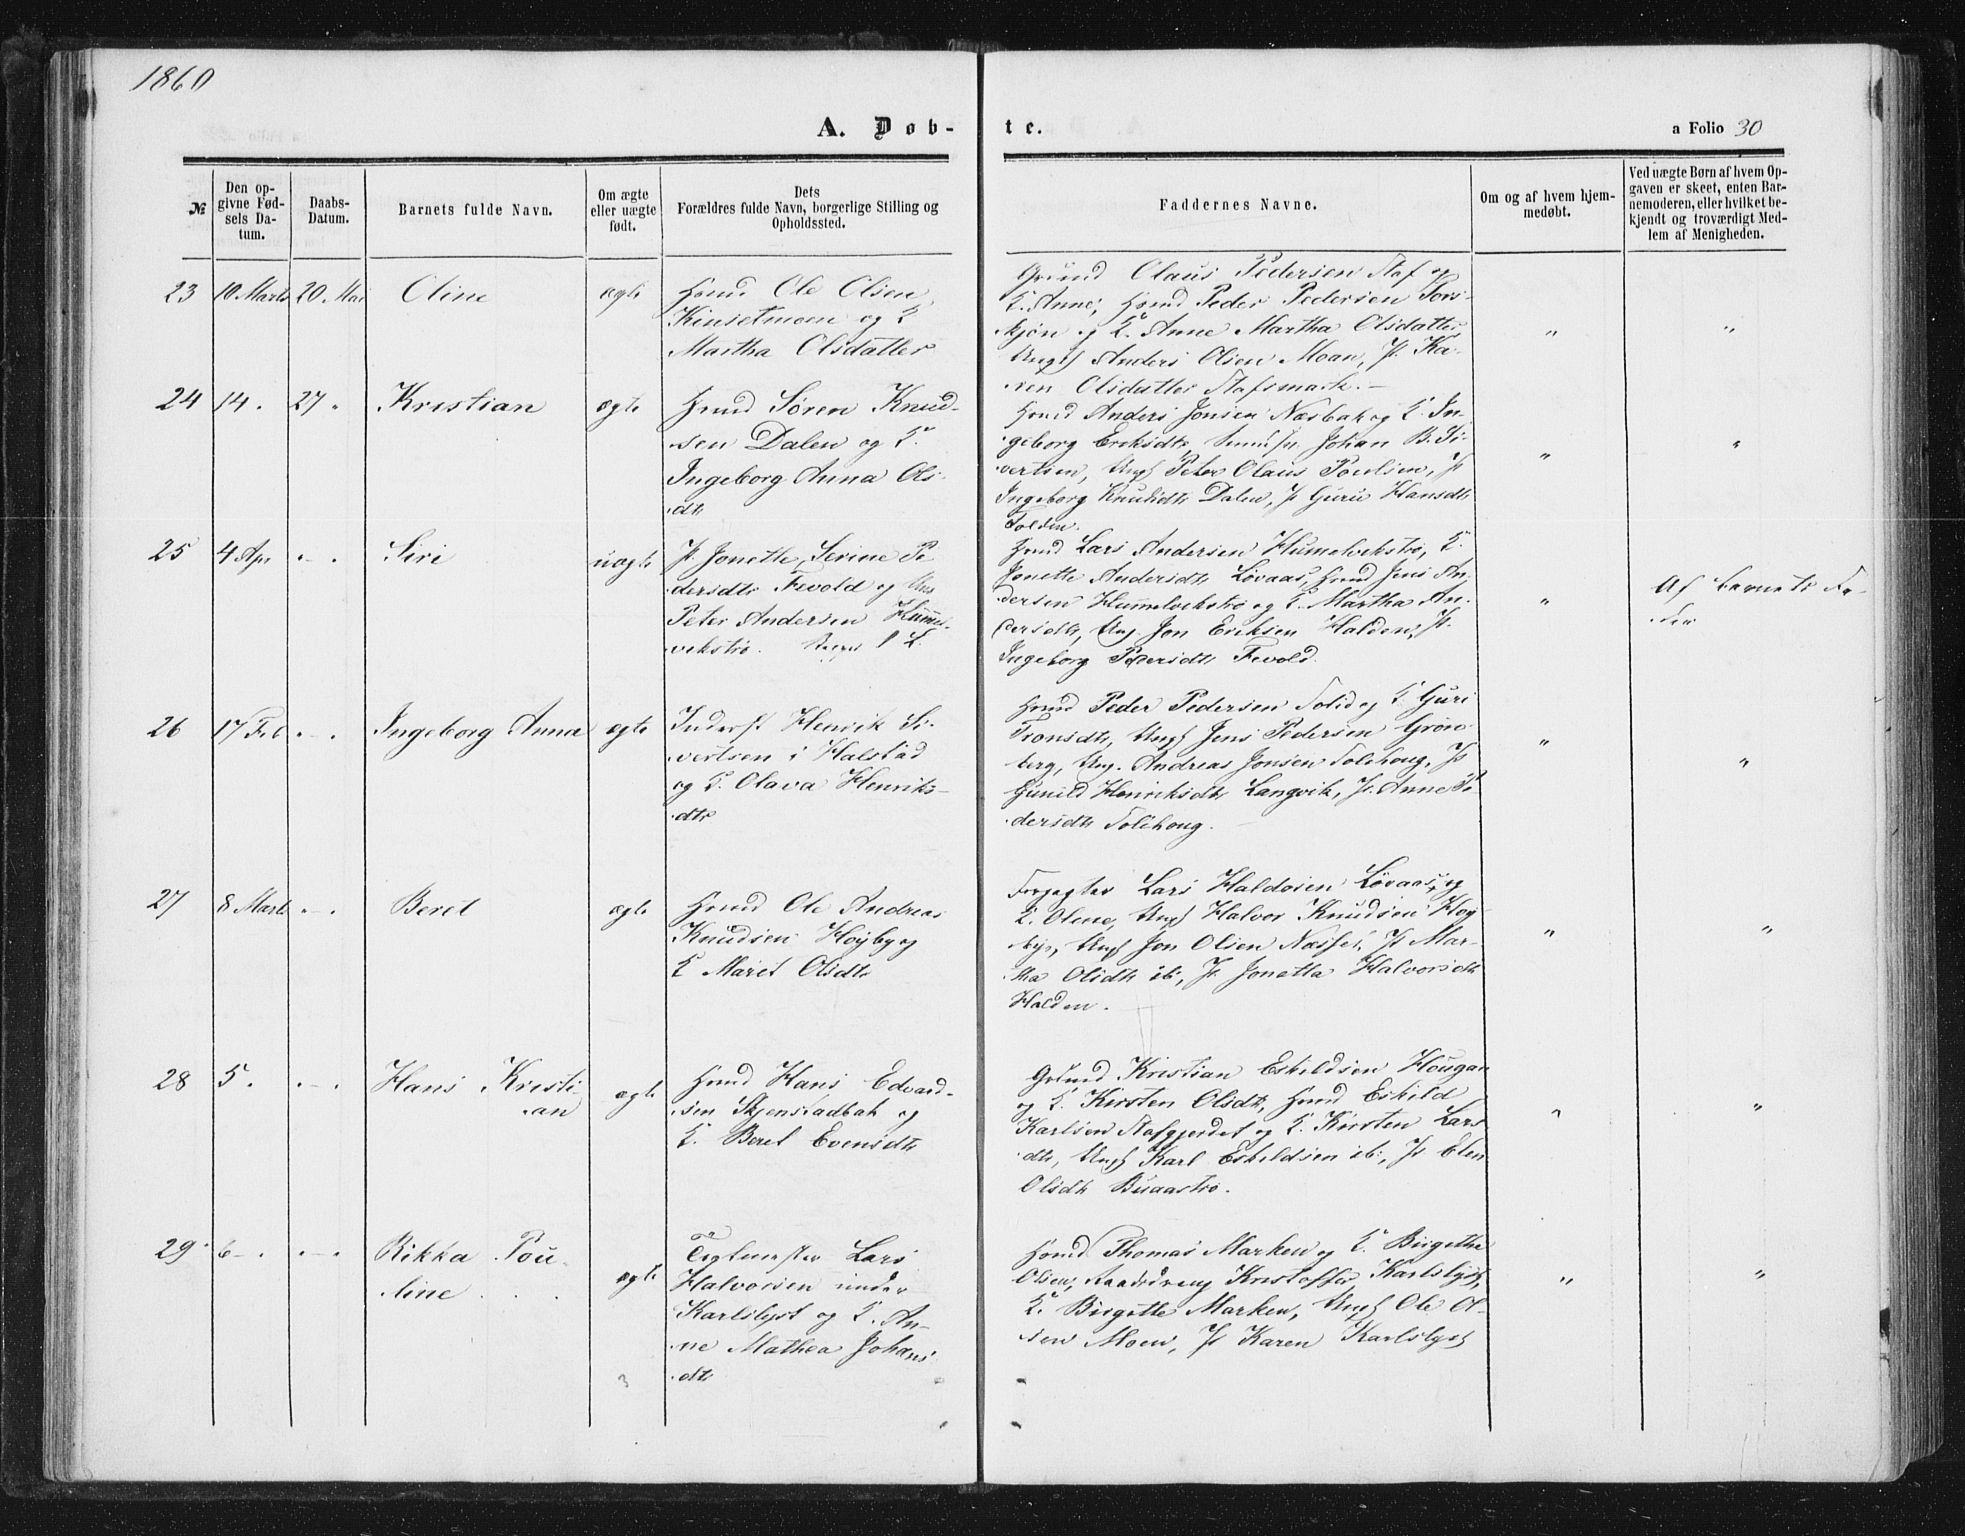 1860
A. Døb-
te.
a Folio 30
№
Den op-
givne Fød-
sels Da-
tum.
Daabs-
Datum.
Barnets fulde Navn.
Om ægte
eller uægte
født.
Dets
Forældres fulde Navn, borgerlige Stilling og
Opholdssted.
Faddernes Navne.
Om og af hvem hjem-
medøbt.
Ved uægte Børn af hvem Op-
gaven er skeet, enten Bar-
nemoderen, eller hvilket be-
kjendt og troværdigt Med-
lem af Menigheden.
23 10 Marts 20 Mai Oline ægte
Hmd Ole Olsen
Kinsetmoen og K
Martha Olsdatter
Grmd Olaus Pedersen Staf og
K. Anne, Hmd Peder Pedersen Tors-
kjøn og K. Anne Martha Olsdatter,
Ungk Anders Olsen Moan, P. Ka-
ren Olsdatter Stafsmark. -
" "
24 14. 27 " Kristian ægte
Hmd Søren Knud-
sen Dalen og K.
Ingeborg Anna Ols-
dtr
Hmd Anders Jonsen Næsbak og K. In-
geborg Eriksdtr, Johan B. Si-
vertsen, Ungk Peter Olaus Poulsen, P.
Ingeborg Knudsdtr Dalen, P. Guru Hansdtr
Tolden.
" "
25 4 Apr " - " Siri uægte
P. Jonette Serine Pe
dersdtr Fevold og Ung
Peter Andersen Hummel-
vikstrø.
Hmd Lars Andersen Humelvekstrø, K.
Jonette Andersdtr Løvaas, Hmd Jens An-
dersen Hummelvekstrø og K. Martha An-
dersdtr, Ung Jon Eriksen Halden, P.
Ingeborg Pedersdtr Fevold.
" Af Barnets Fa-
der
26 17 Feb " - " Ingeborg Anna ægte
Inderst Henrik Si-
vertsen i Halstad
og K. Olava Henriks-
dtr
Hmd Peder Pedersen Solid og K Guri
Tronsdtr, Ungk Jens Pedersen Grøn-
berg, Ung. Andreas Jonsen Solihoug, P.
Gunild Henriksdtr Langvik, P. Anne Pe
dersdtr Solihoug.
" "
27 8 Marts " - " Beret ægte
Hmd Ole Andreas
Knudsen Høyby og
K Maret Olsdtr
Forpagter Lars Haldosen Løvaas og
K. Oline, Ungk Halvor Knudsen Høy
bye, Ungk Jon Olsen Næsset, P. Mar-
tha Olsdtr ib:, P. Jonetta Halvorsdtr
Halden.
" "
28 5. " - " Hans Kristi-
an ægte
Hmd Hans Edvard-
sen Skjenstadbak og
K. Beret Evensdtr
Grbmd Kristian Eskildsen Hougan
og K. Kirsten Olsdtr, Hmd Eskild
Karlsen Stafgjerdet og K. Kirsten Lars
dtr, Ungk Karl Eskildsen ib:, P. Elen
Olsdtr Buaastrø.
" "
29 6 - " - " Rikka Pou-
line ægte
Teglmester Lars
Halvorsen under
Karlslyst og K. An-
ne Mathea Johans
dtr
Hmd Thomas Marken og K. Birgethe
Olsen, Kristoffer Karlslyst,
K. Birgitte Marken, Ungk Ole Ol-
sen Moen, P. Karen Karlslyst
" "
3